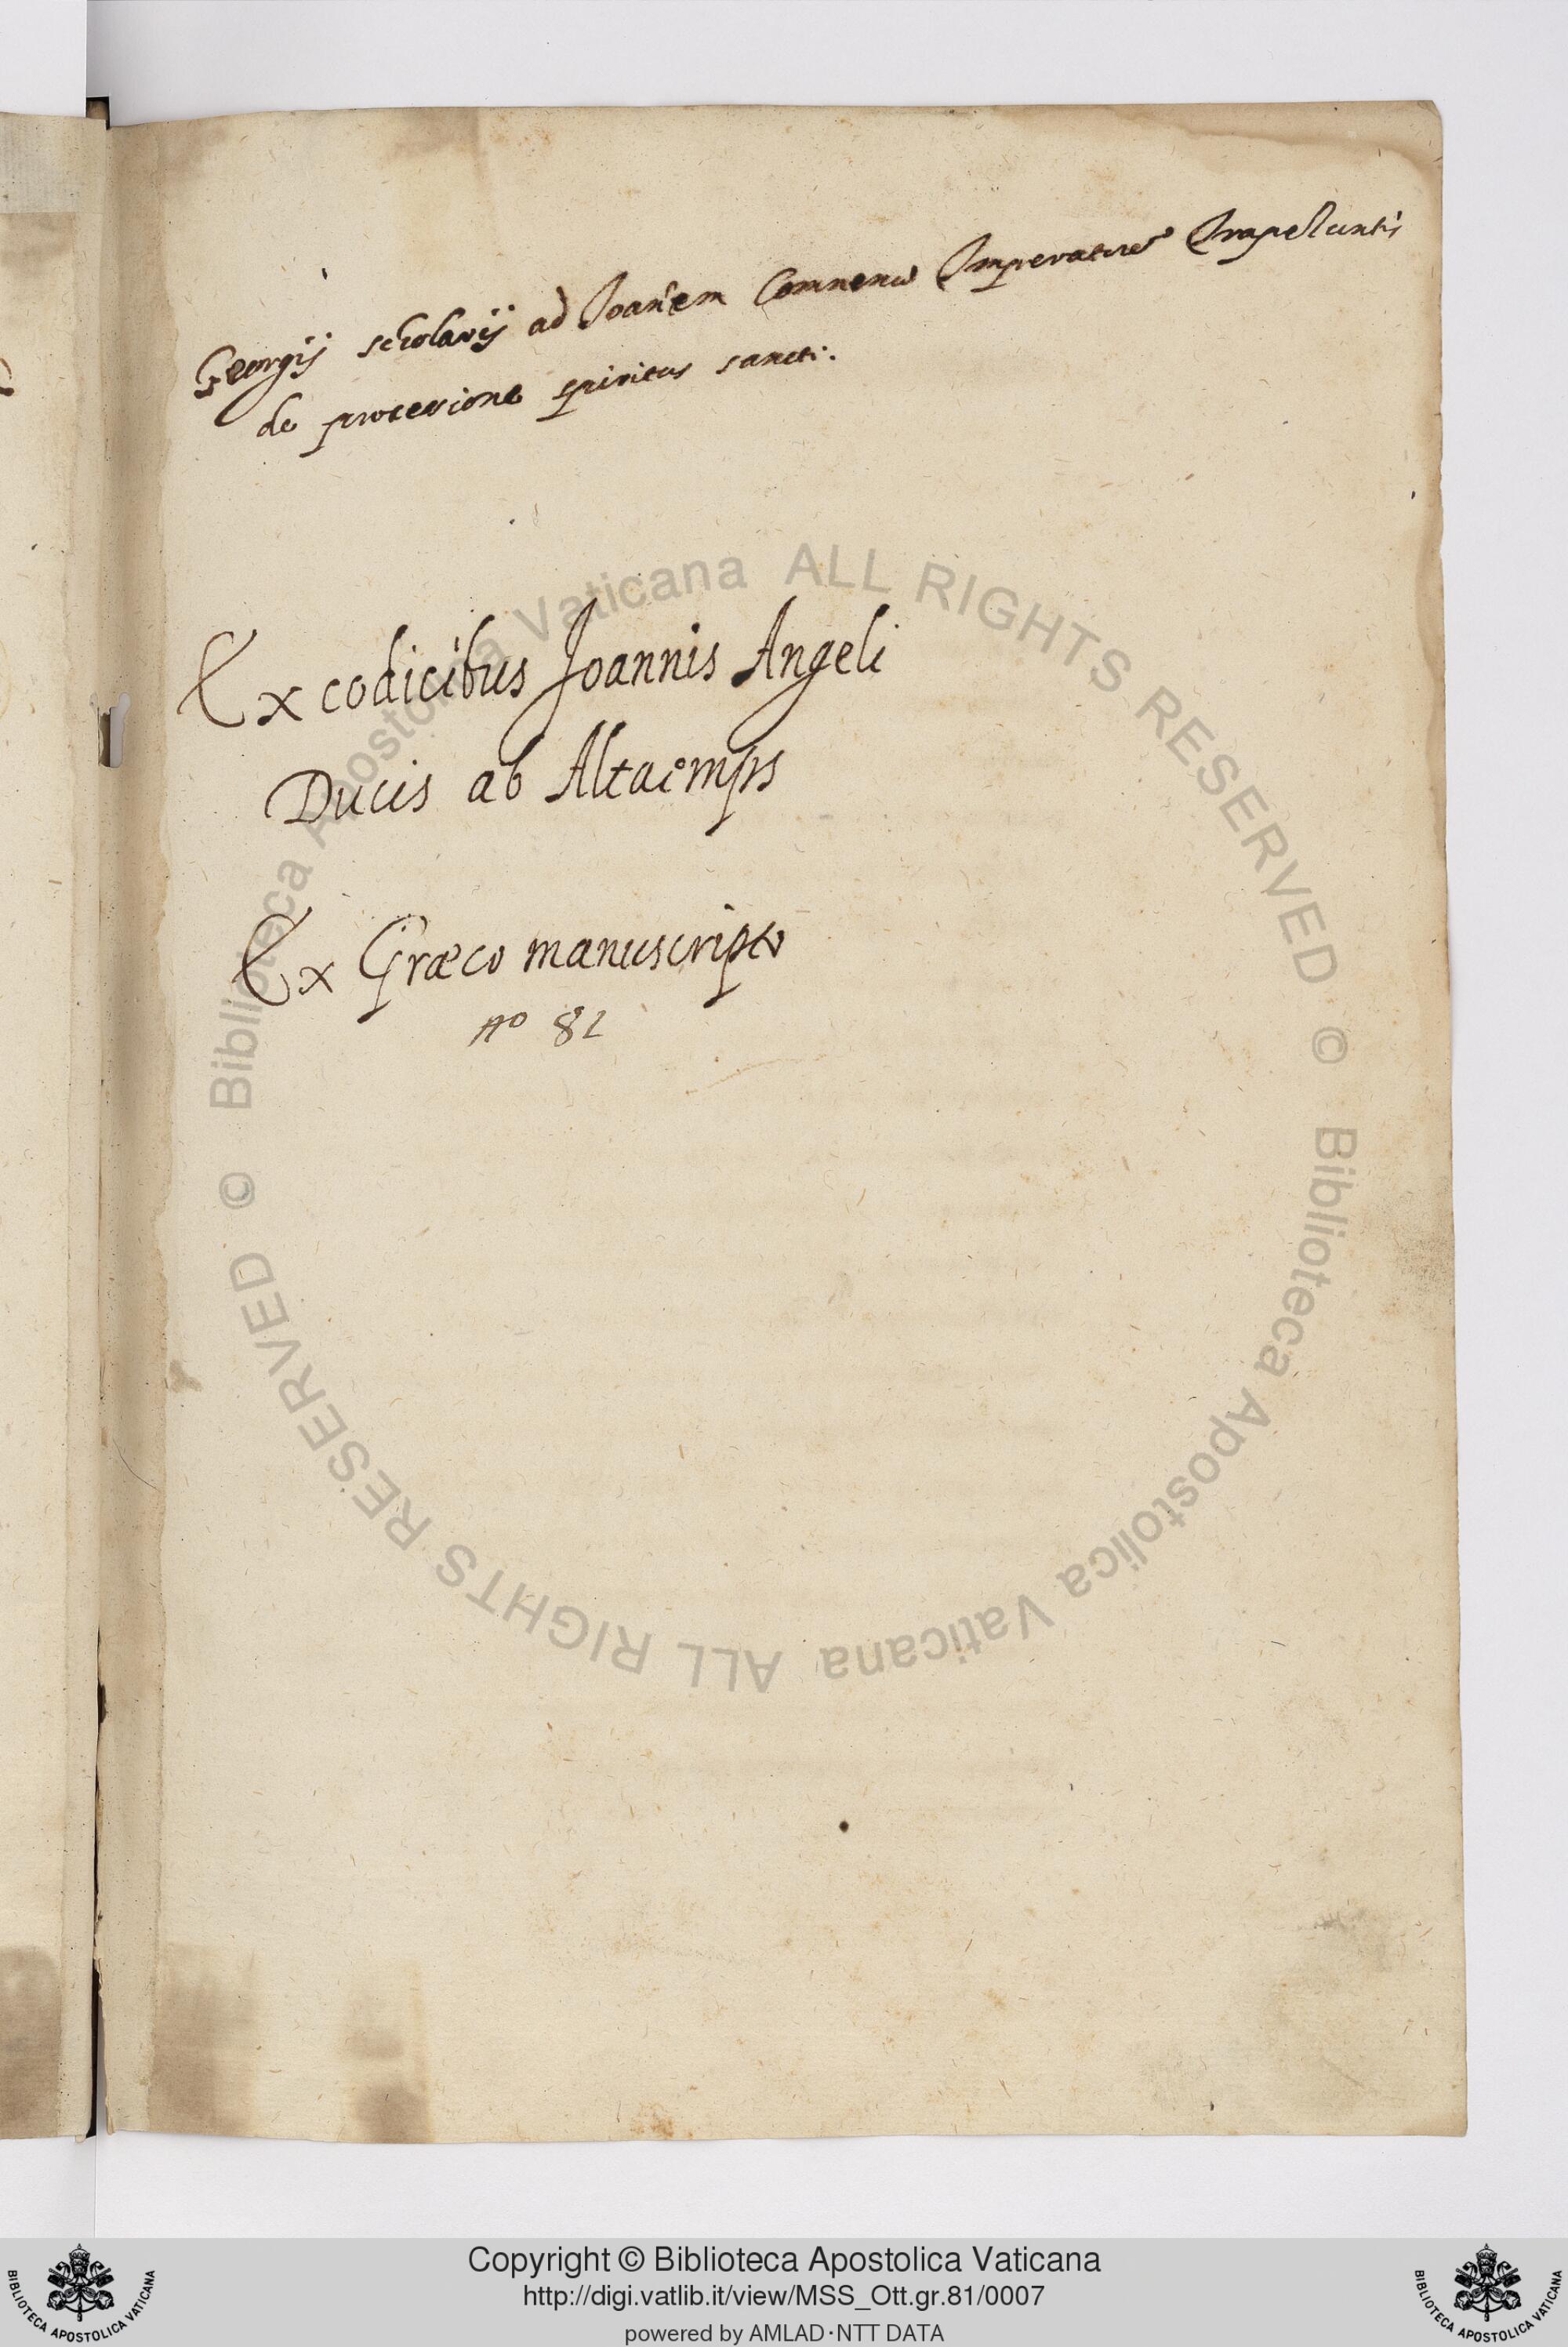 Georgij scholarij ad Joan̄em Comnenū Imperatorē Trapezuntis
de processione spiritus sancti.
Ex codicibus Joannis Angeli
Ducis ab Altaemps
Ex Græco manuscripto
nº 81
© Biblioteca Apostolica Vaticana ALL RIGHTS RESERVED
© Biblioteca Apostolica Vaticana ALL RIGHTS RESERVED
Copyright © Biblioteca Apostolica Vaticana
http://digi.vatlib.it/view/MSS_Ott.gr.81/0007
powered by AMLAD·NTT DATA
BIBLIOTECA APOSTOLICA VATICANA
BIBLIOTECA APOSTOLICA VATICANA